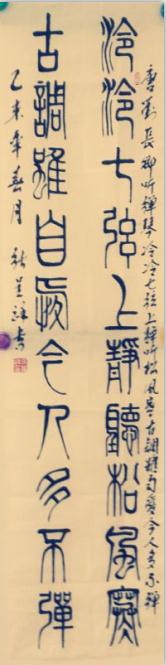 唐劉長卿听彈琴泠泠七弦上靜听松風寒古調雖自愛今人多不彈
泠泠七弦上靜聽松風寒
古調雖自愛今人多不彈
乙未年春月